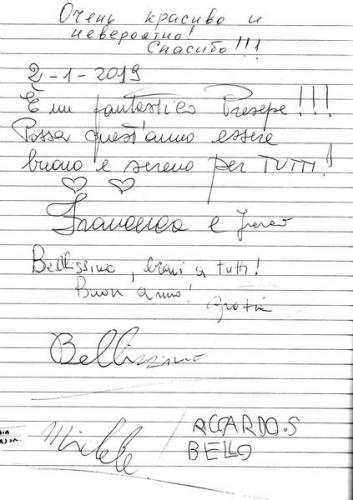 Очень красиво и
невероятно!
Спасибо!!!
2-1-2019
È un fantastico Presepe!!!
Possa quest'anno essere
buono e sereno per TUTTI!
Francesca e
Bellissimo, bravi a tutti!
Buon anno! Grazie
Bellissimo
Michele
RCCARDO.S
BELLO